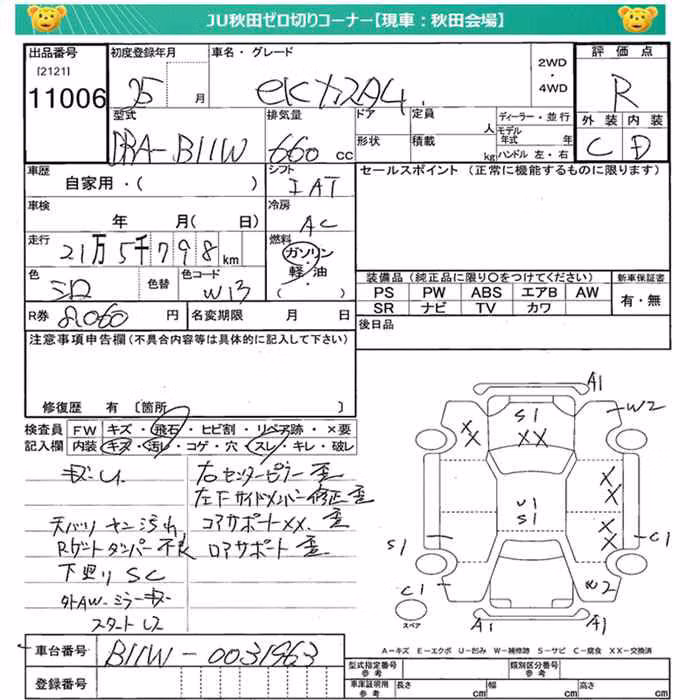 JU秋田ゼロ切りコーナー【現車：秋田会場】
出品番号
[2121]
11006
初度登録年月
25 月
車名・グレード
eKカスタム
2WD
・
4WD
評価点
R
外装 内装
C D
型式
DBA-B11W
排気量
660 cc
ドア
定員
人
形状
積載
kg
ディーラー・並行
モデル年式 年
ハンドル 左・右
車歴
自家用・( )
シフト
IAT
セールスポイント (正常に機能するものに限ります)
車検
年 月( 日)
冷房
AC
走行
21万5千798 km
燃料
ガソリン
・
軽油
( )
色
シロ
色替
色コード
W13
装備品 (純正品に限り○をつけてください)
PS PW ABS エアB AW
SR ナビ TV カワ
新車保証書
有・無
R券 8,060 円
名変期限 月 日
後日品
注意事項申告欄(不具合内容等は具体的に記入して下さい)
修復歴 有 [箇所 ]
検査員記入欄
FW キズ・飛石・ヒビ割・リペア跡・×要
内装 キズ・汚レ・コゲ・穴・スレ・キレ・破レ
キズ・U
天バリ ヤニ汚れ
Rゲートダンパー不良
下廻り SC
外AW・ミラーキズ
スタートレス
右センターピラー歪
左Fサイドメンバー修正歪
コアサポートXX、歪
ロアサポート歪
A1
S1
XX
W2
XX
U1
S1
XX
XX
S1
C1
C1
W2
A1
A1
スペア
A-キズ E-エクボ U-凹み W-補修跡 S-サビ C-腐食 XX-交換済
車台番号
B11W-0031963
登録番号
型式指定番号
参考
類別区分番号
参考
車庫証明用
参考
長さ cm
幅 cm
高さ cm